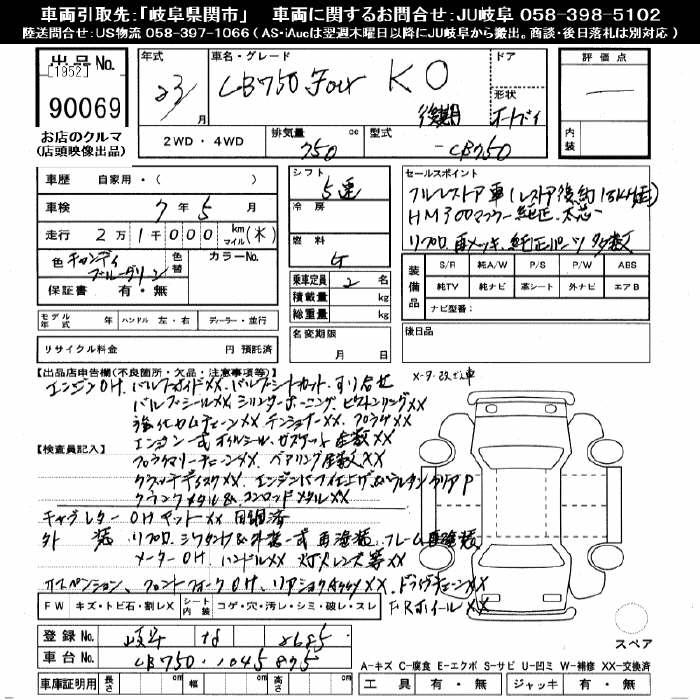 車両引取先:「岐阜県関市」　車両に関するお問合せ:JU岐阜 058-398-5102
陸送問合せ:US物流 058-397-1066 ( AS・iAucは翌週木曜日以降にJU岐阜から搬出。商談・後日落札は別対応 )
出品No. [1952] 90069
お店のクルマ
(店頭映像出品)
年式 23 月
車名・グレード CB750 Four K0 後期
ドア
形状 オートバイ
評価点 ー
内装
2WD・4WD
排気量 750 cc
型式 -CB750
車歴 自家用・( )
車検 7年5月
走行 2万1千000 km マイル (木)
色 キャンディブルーグリーン
色替
カラーNo.
保証書 有・無
シフト 5速
冷房
燃料 G
乗車定員 2名
積載量 kg
総重量 kg
セールスポイント
フルレストア車(レストア後約15km走)
HM300マフラー 純正、太芯
リプロ、再メッキ、純正パーツ多数
装備品 S/R 純A/W P/S P/W ABS
純TV 純ナビ 革シート 外ナビ エアB
ナビ型番:
モデル年式 年 ハンドル 左・右 ディーラー・並行
リサイクル料金 円 預託済
名変期限 月 日
後日品
【出品店申告欄(不良箇所・欠品・注意事項等)】 メーター改ざん車
エンジンOH、バルブガイドXX、バルブシートカット、すり合せ
バルブシールXX、シリンダーホーニング、ピストンリングXX
強化カムチェーンXX テンショナーXX、
【検査員記入】
エンジン一式オイルシール、ガスケット全数XX
プライマリーチェーンXX、ベアリング全数XX
クラッチディスクXX、エンジンバフ仕上げ&ウレタンクリアP
クランクメタル&コンロッドメタルXX
キャブレターOH セットXX 同調済
外装 リプロ、 外装一式再塗装、フレーム再塗装、
メーターOH、ハンドルXX 灯火レンズ等XX
サスペンション、フロントフォークOH、リアショックassyXX、ドライブチェーンXX
F・RホイールXX
FW キズ・トビ石・割レX シート内装 コゲ・穴・汚レ・シミ・破レ・スレ
登録No. 岐阜 な 2685
車台No. CB750・1045895
車庫証明用 長さ cm 幅 cm 高さ cm
スペア
A-キズ C-腐食 E-エクボ S-サビ U-凹ミ W-補修 XX-交換済
工具 有・無 ジャッキ 有・無